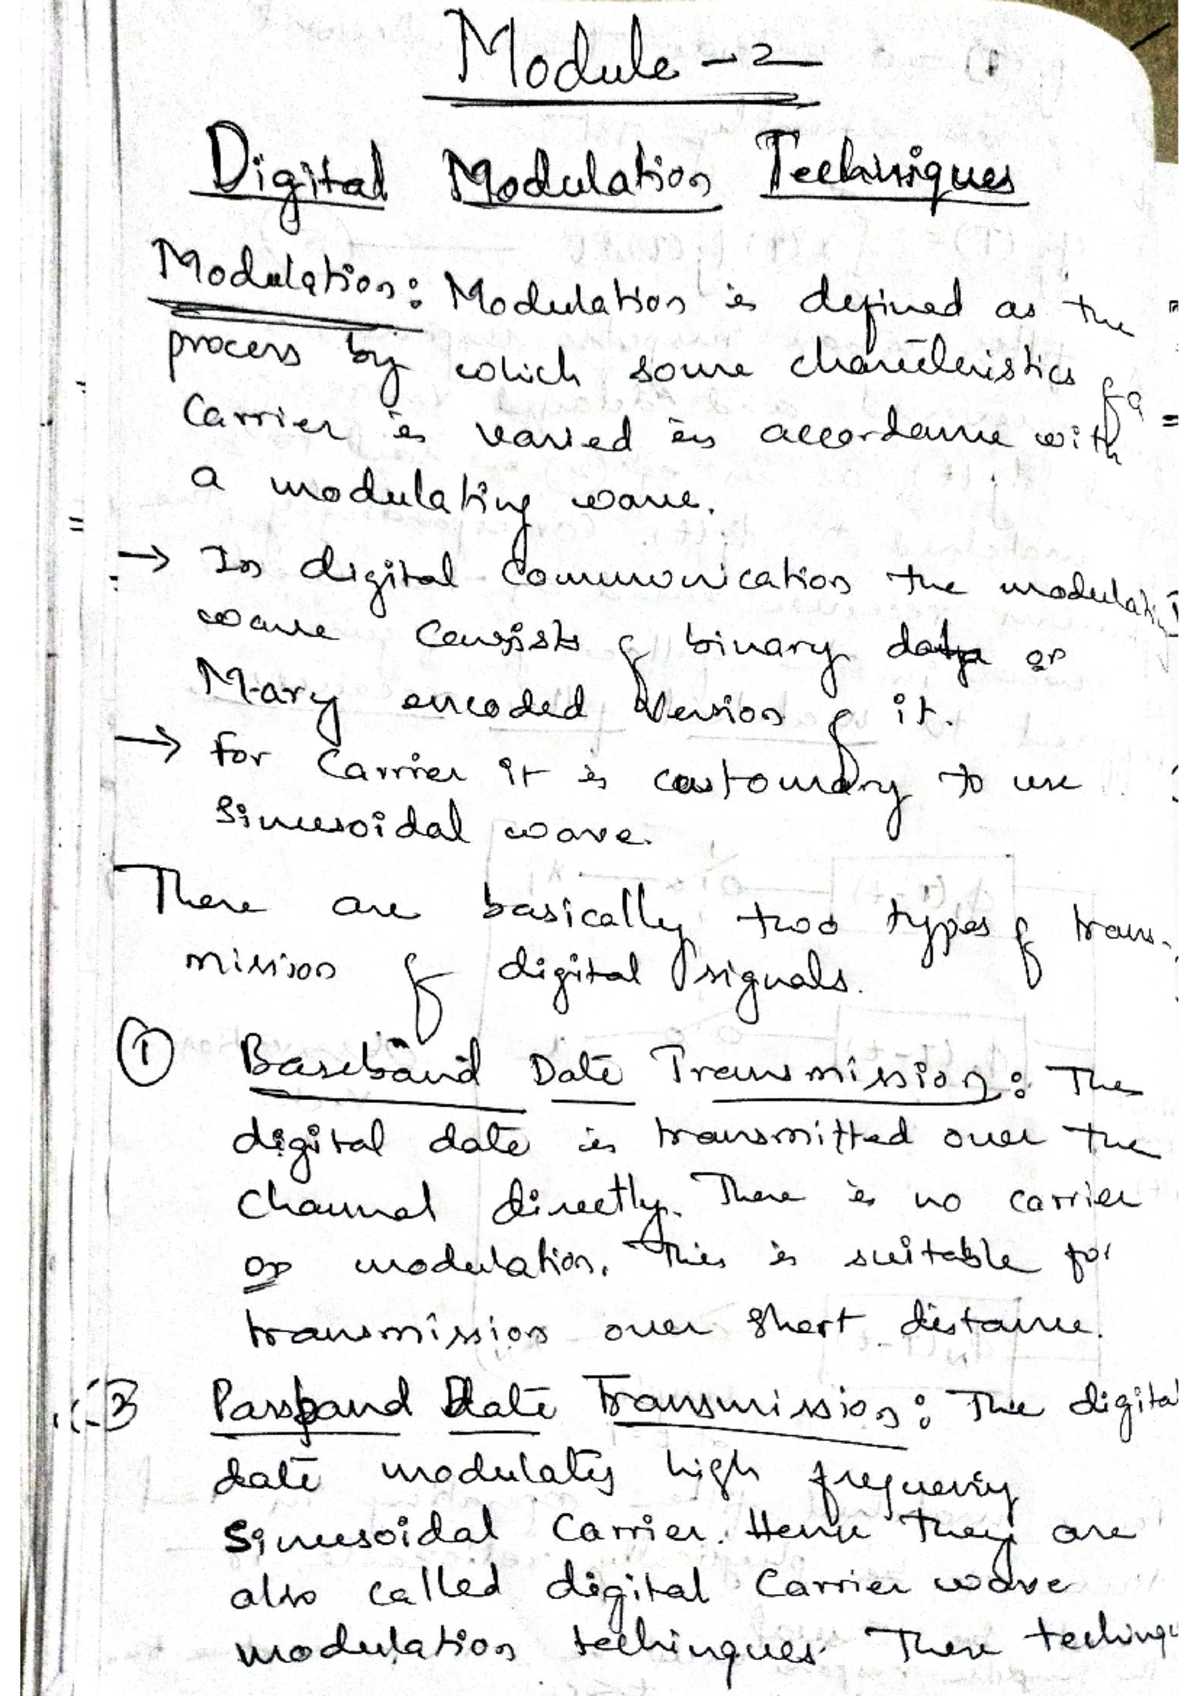 Module - 2
Digital Modulation Techniques
Modulation: Modulation is defined as the
process by which some characteristics of a
Carrier is varied in accordance with
a modulating wave.
→ In digital Communication the modulati
wave consists of binary data or
M-ary encoded Version of it.
→ For Carrier it is customary to use
Sinusoidal wave.
There are basically two types of trans-
mission of digital signals.
① Baseband Date Transmission: The
digital date is transmitted over the
Channel directly. There is no carrier
or modulation. This is suitable for
transmission over short distance.
② Passband Date Transmission: The digital
date modulates high frequency
Sinusoidal Carrier. Hence they are
also called digital Carrier wave
modulation techinques. These techinqu